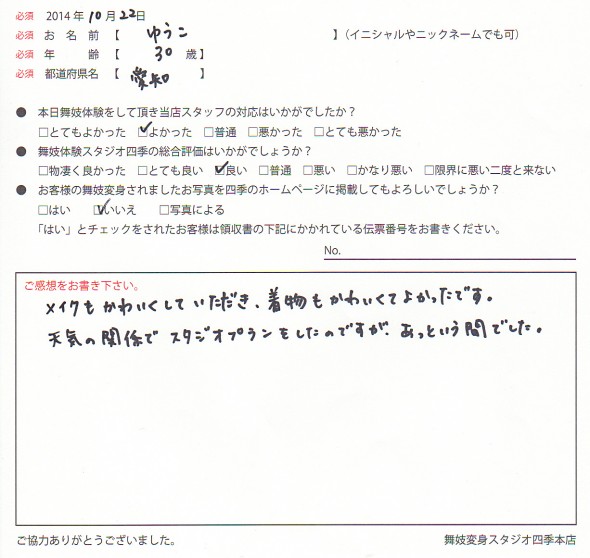 必須 2014年10月22日
必須 お名前【 ゆうこ 】(イニシャルやニックネームでも可)
必須 年齢【 30 歳】
必須 都道府県名【 愛知 】
● 本日舞妓体験をして頂き当店スタッフの対応はいかがでしたか？
□とてもよかった ☑よかった □普通 □悪かった □とても悪かった
● 舞妓体験スタジオ四季の総合評価はいかがでしょうか？
□物凄く良かった □とても良い ☑良い □普通 □悪い □かなり悪い □限界に悪い二度と来ない
● お客様の舞妓変身されましたお写真を四季のホームページに掲載してもよろしいでしょうか？
□はい ☑いいえ □写真による
「はい」とチェックをされたお客様は領収書の下記にかかれている伝票番号をお書きください。
No.
ご感想をお書き下さい。
メイクもかわいくしていただき、着物もかわいくてよかったです。
天気の関係でスタジオプランをしたのですが、あっという間でした。
ご協力ありがとうございました。 舞妓変身スタジオ四季本店